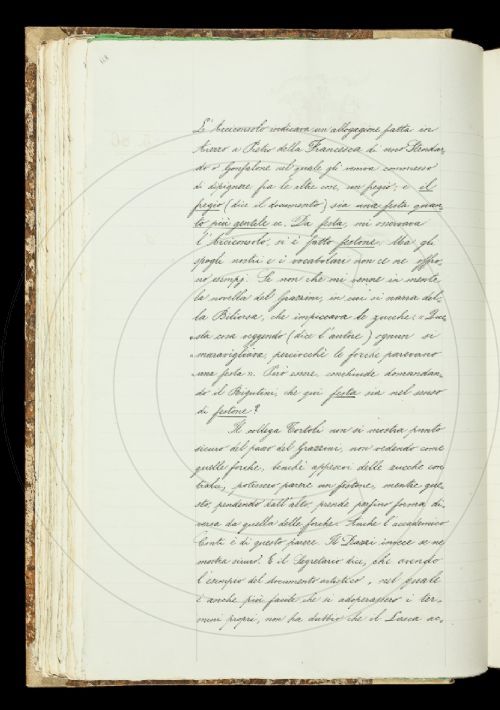 L'Arciconsolo indicava un'allogagione fatta in
Arezzo a Pietro della Francesca di uno Stendar-
do o Gonfalone nel quale gli veniva commesso
di dipignere fra le altre cose, un fregio; e il
fregio (dice il documento) sia una festa quan-
to più gentile ec. Da festa, mi osservava
l'Arciconsolo, si è fatto festone. Ma gli
spogli nostri e i vocabolari non ce ne offro-
no esempj. Se non che mi venne in mente
la novella del Grazzini, in cui si narra del-
la Biliorsa, che impiccava le zucche; « Que-
sta cosa veggendo (dice l'autore) ognun si
maravigliava, perciocchè le forche parevano
una festa ». Può essere, conchiude domandan-
do il Rigutini, che qui festa sia nel senso
di festone?
Il collega Tortoli non si mostra punto
sicuro del passo del Grazzini, non vedendo come
quelle forche, benchè appesovi delle zucche con
potessero parere un festone, mentre que-
sto, pendendo dall'alto, prende perfino forma di-
versa da quella delle forche. Anche l'accademico
Conti è di questo parere. Il Dazzi invece se ne
mostra sicuro. E il Segretario dice, che avendo
l'esempio del documento artistico, nel quale
è anche più facile che si adoperassero i ter-
mini propri, non ha dubbio che il Lasca ac-